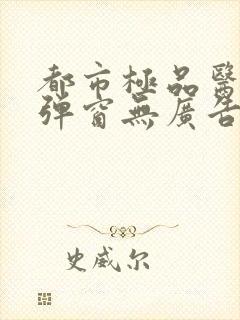 都市極品醫
彈窗無廣告
史威尔